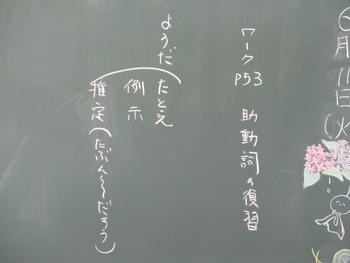 月11日(火
ワーク P53 助動詞の復習
ようだ
たとえ
例示
推定(たぶん〜〜だろう)